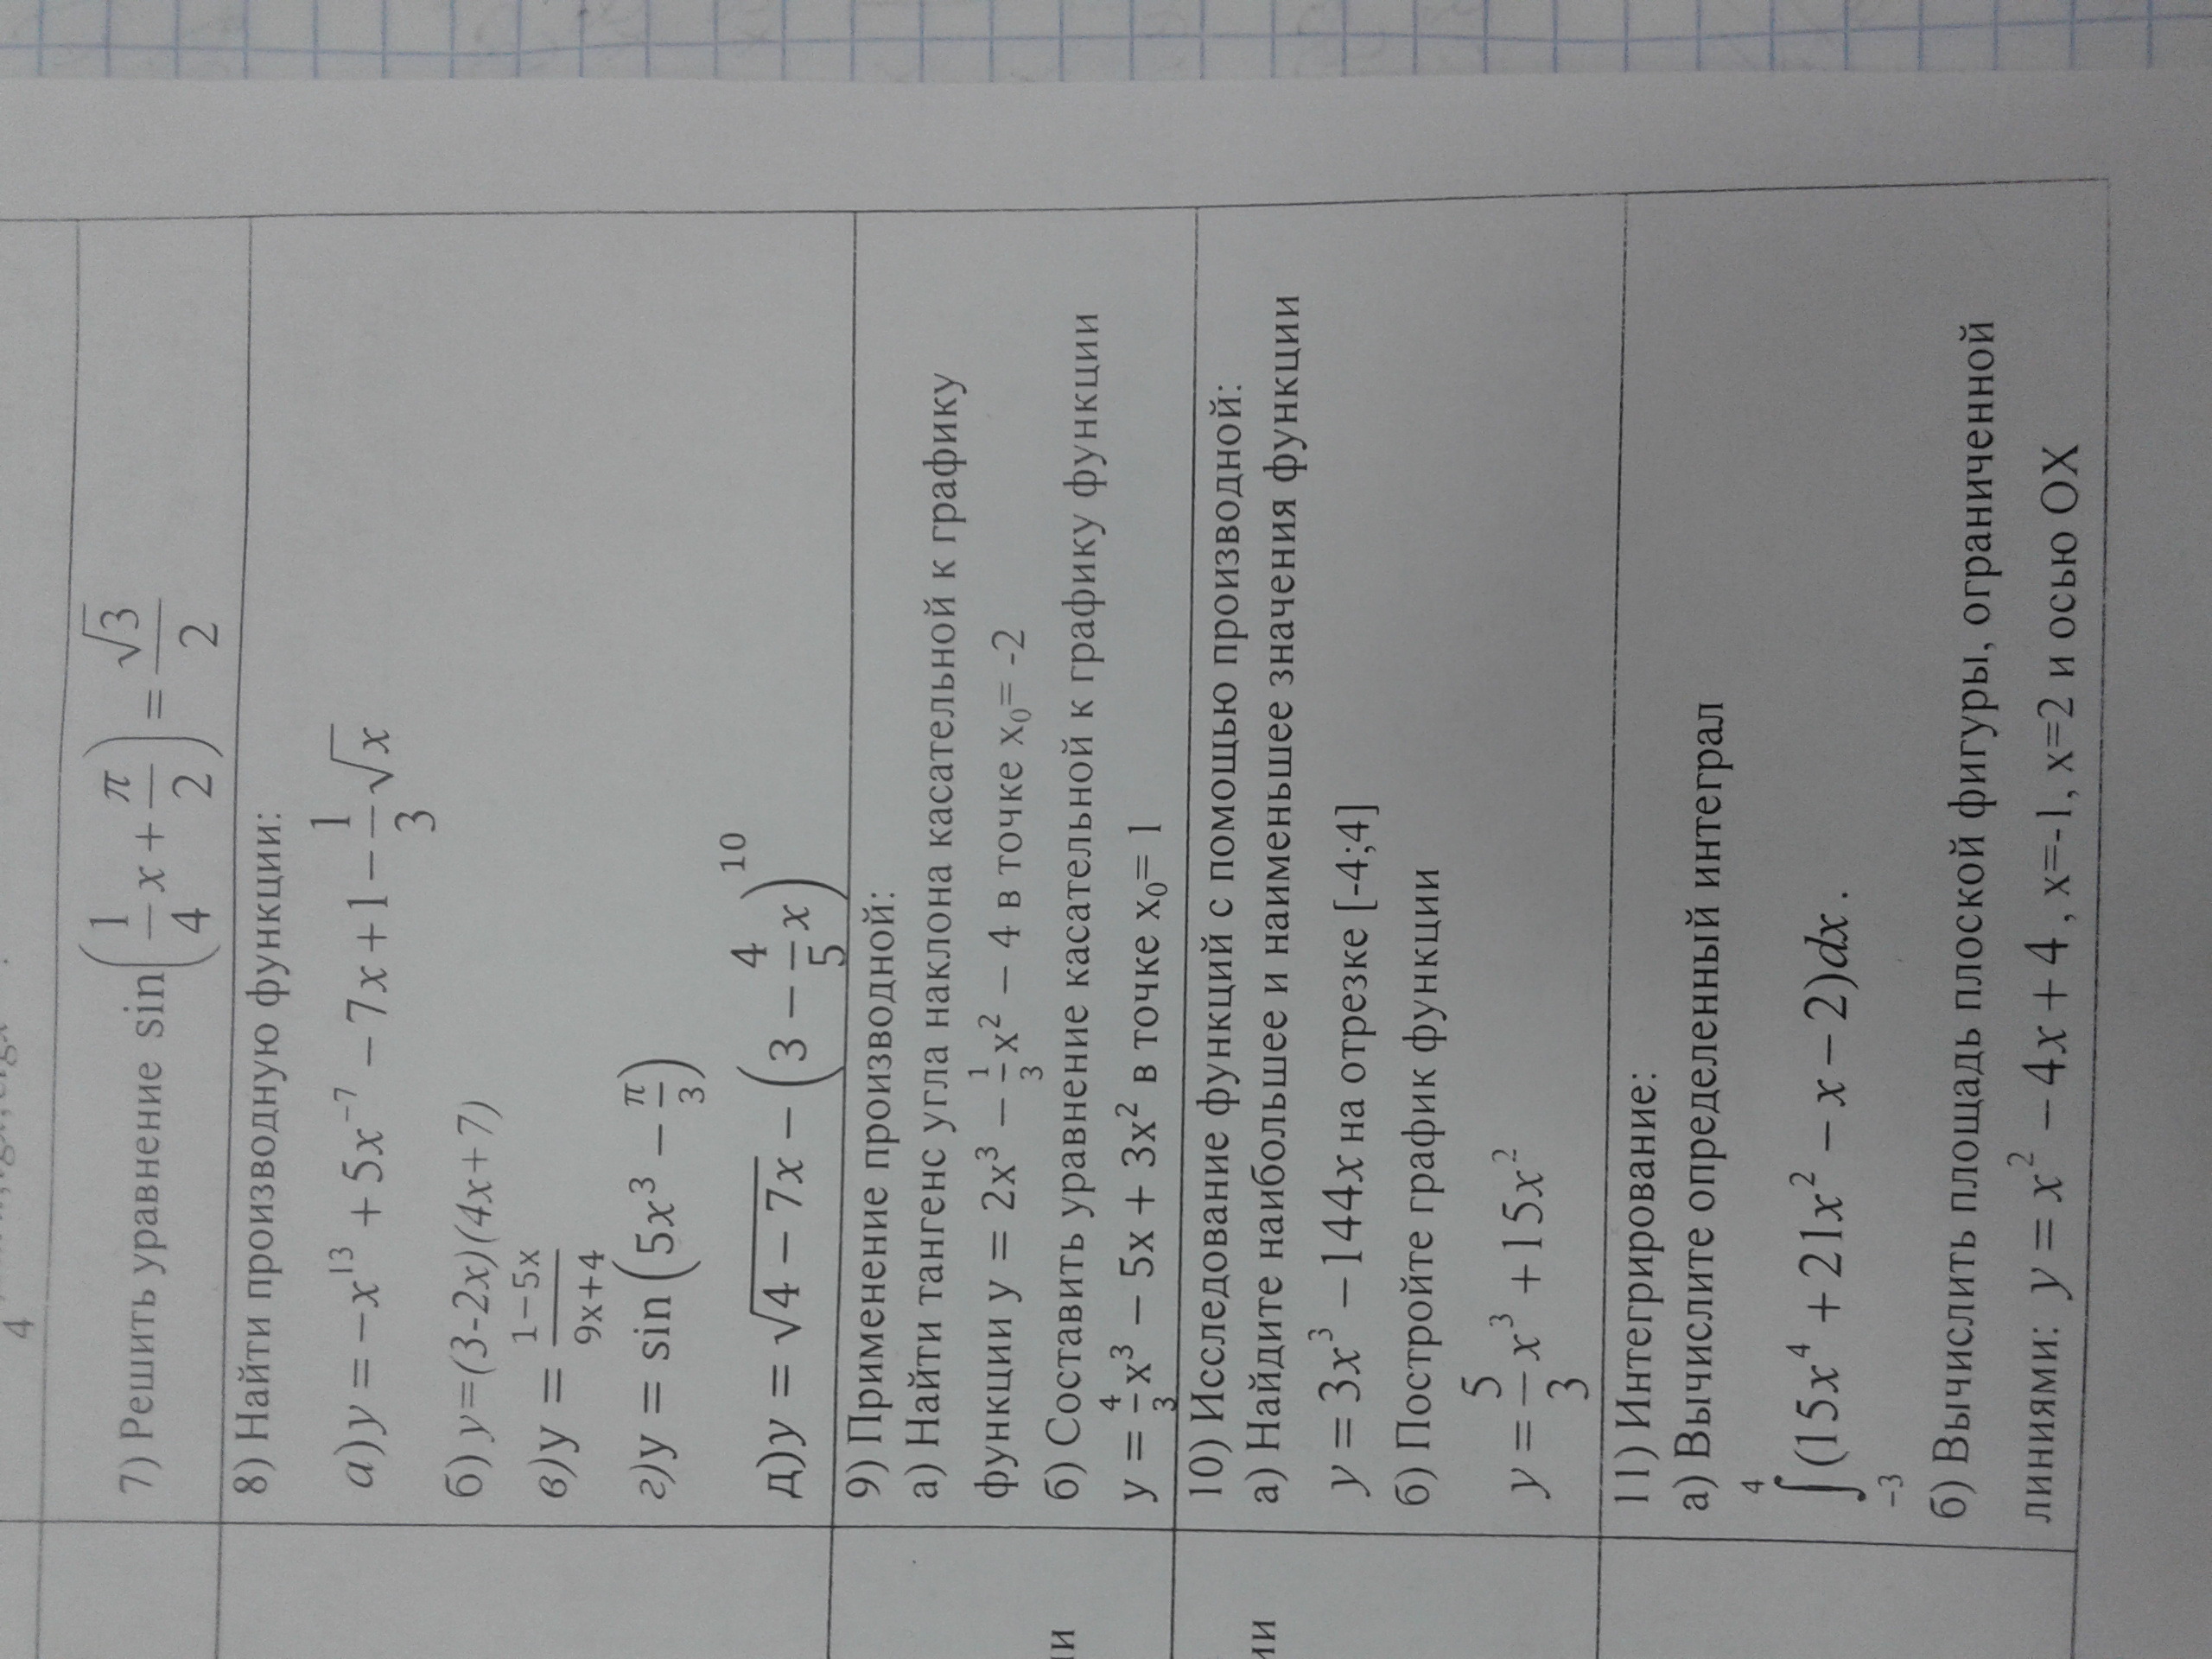 4
7) Решить уравнение sin(1/4 x + π/2) = √3/2
8) Найти производную функции:
а)y = −x¹³ + 5x⁻⁷ − 7x + 1 − 1/3 √x
б) y=(3-2x)(4x+7)
в)y = 1−5x/9x+4
г)y = sin(5x³ − π/3)
д)y = √4 − 7x − (3 − 4/5 x)¹⁰
9) Применение производной:
а) Найти тангенс угла наклона касательной к графику
функции y = 2x³ − 1/3 x² − 4 в точке x₀= -2
б) Составить уравнение касательной к графику функции
y = 4/3 x³ − 5x + 3x² в точке x₀= 1
10) Исследование функций с помощью производной:
а) Найдите наибольшее и наименьшее значения функции
y = 3x³ −144x на отрезке [-4;4]
б) Постройте график функции
y = 5/3 x³ +15x²
11) Интегрирование:
а) Вычислите определенный интеграл
4
∫(15x⁴ + 21x² − x − 2)dx .
−3
б) Вычислить площадь плоской фигуры, ограниченной
линиями: y = x² − 4x + 4 , x=-1, x=2 и осью ОХ
ии
ии